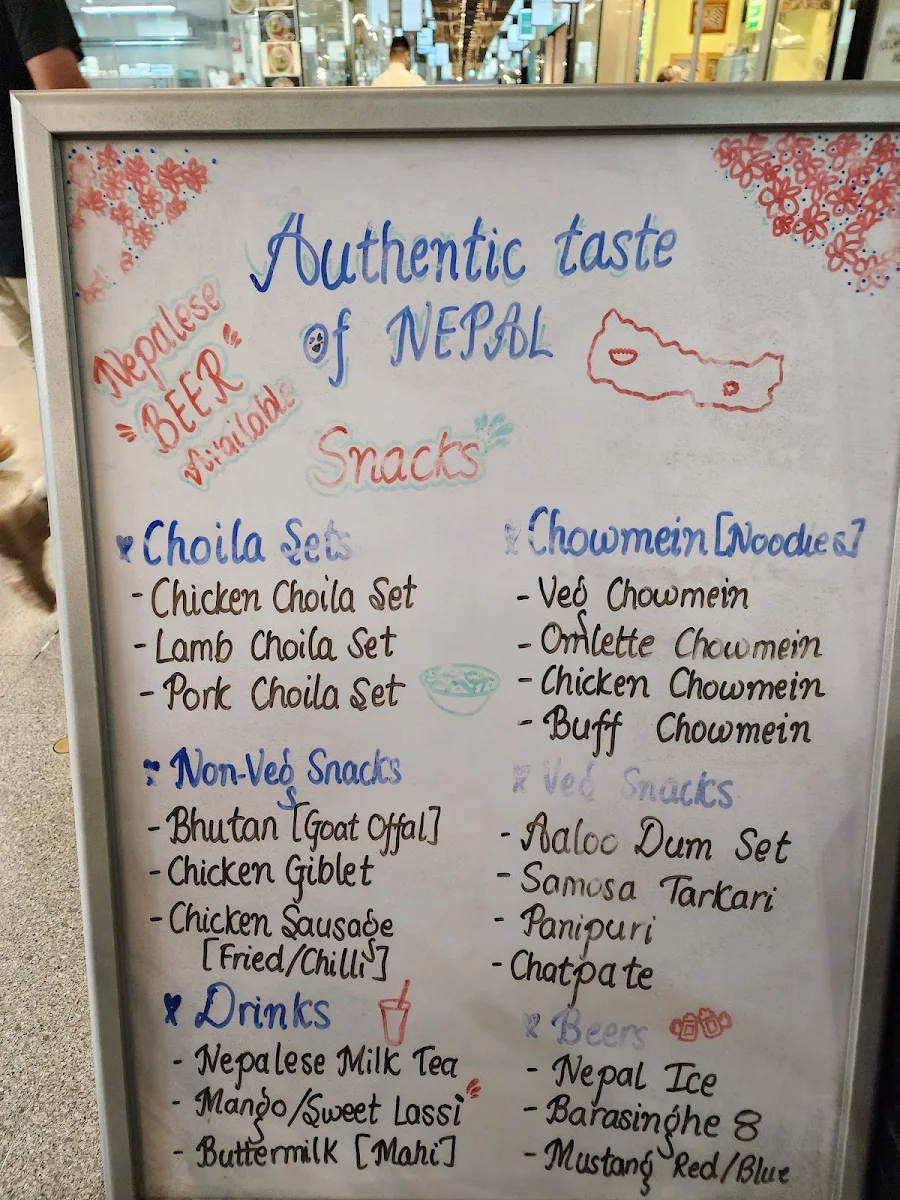 Authentic taste
of NEPAL
Nepalese
BEER
Available
Snacks
Choila Sets
- Chicken Choila Set
- Lamb Choila Set
- Pork Choila Set
Chowmein [Noodles]
- Veg Chowmein
- Omlette Chowmein
- Chicken Chowmein
- Buff Chowmein
Non-Veg Snacks
- Bhutan [Goat Offal]
- Chicken Giblet
- Chicken Sausage
[Fried/Chilli]
Veg Snacks
- Aaloo Dum Set
- Samosa Tarkari
- Panipuri
- Chatpate
Drinks
- Nepalese Milk Tea
- Mango/Sweet Lassi
- Buttermilk [Mahi]
Beers
- Nepal Ice
- Barasinghe 8
- Mustang Red/Blue